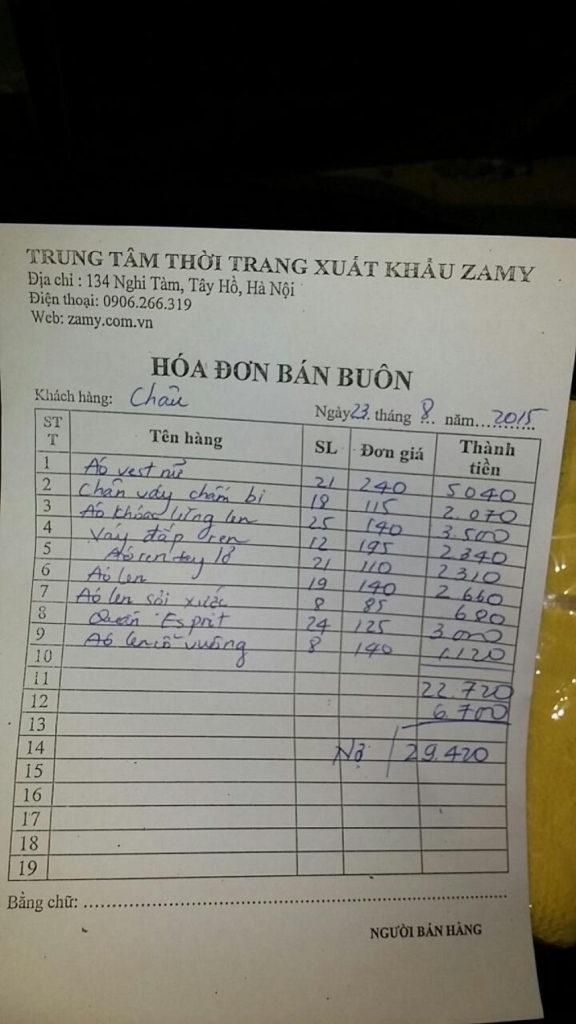 TRUNG TÂM THỜI TRANG XUẤT KHẨU ZAMY
Địa chỉ : 134 Nghi Tàm, Tây Hồ, Hà Nội
Điện thoại: 0906.266.319
Web: zamy.com.vn
HÓA ĐƠN BÁN BUÔN
Khách hàng: Châu
Ngày 23 tháng 8 năm 2015
STT Tên hàng SL Đơn giá Thành tiền
1 Áo vest nữ 21 240 5040
2 Chân váy chấm bi 18 115 2.070
3 Áo khoác lửng len 25 140 3.500
4 Váy đắp ren 12 195 2340
5 Áo ren tay lỡ 21 110 2310
6 Áo len 19 140 2.660
7 Áo len sỏi xước 8 85 680
8 Quần Esprit 24 125 3.000
9 Áo len cổ vuông 8 140 1.120
10
11 22.720
12 6.700
13
14 Nợ 29.420
15
16
17
18
19
Bằng chữ: ........................
NGƯỜI BÁN HÀNG